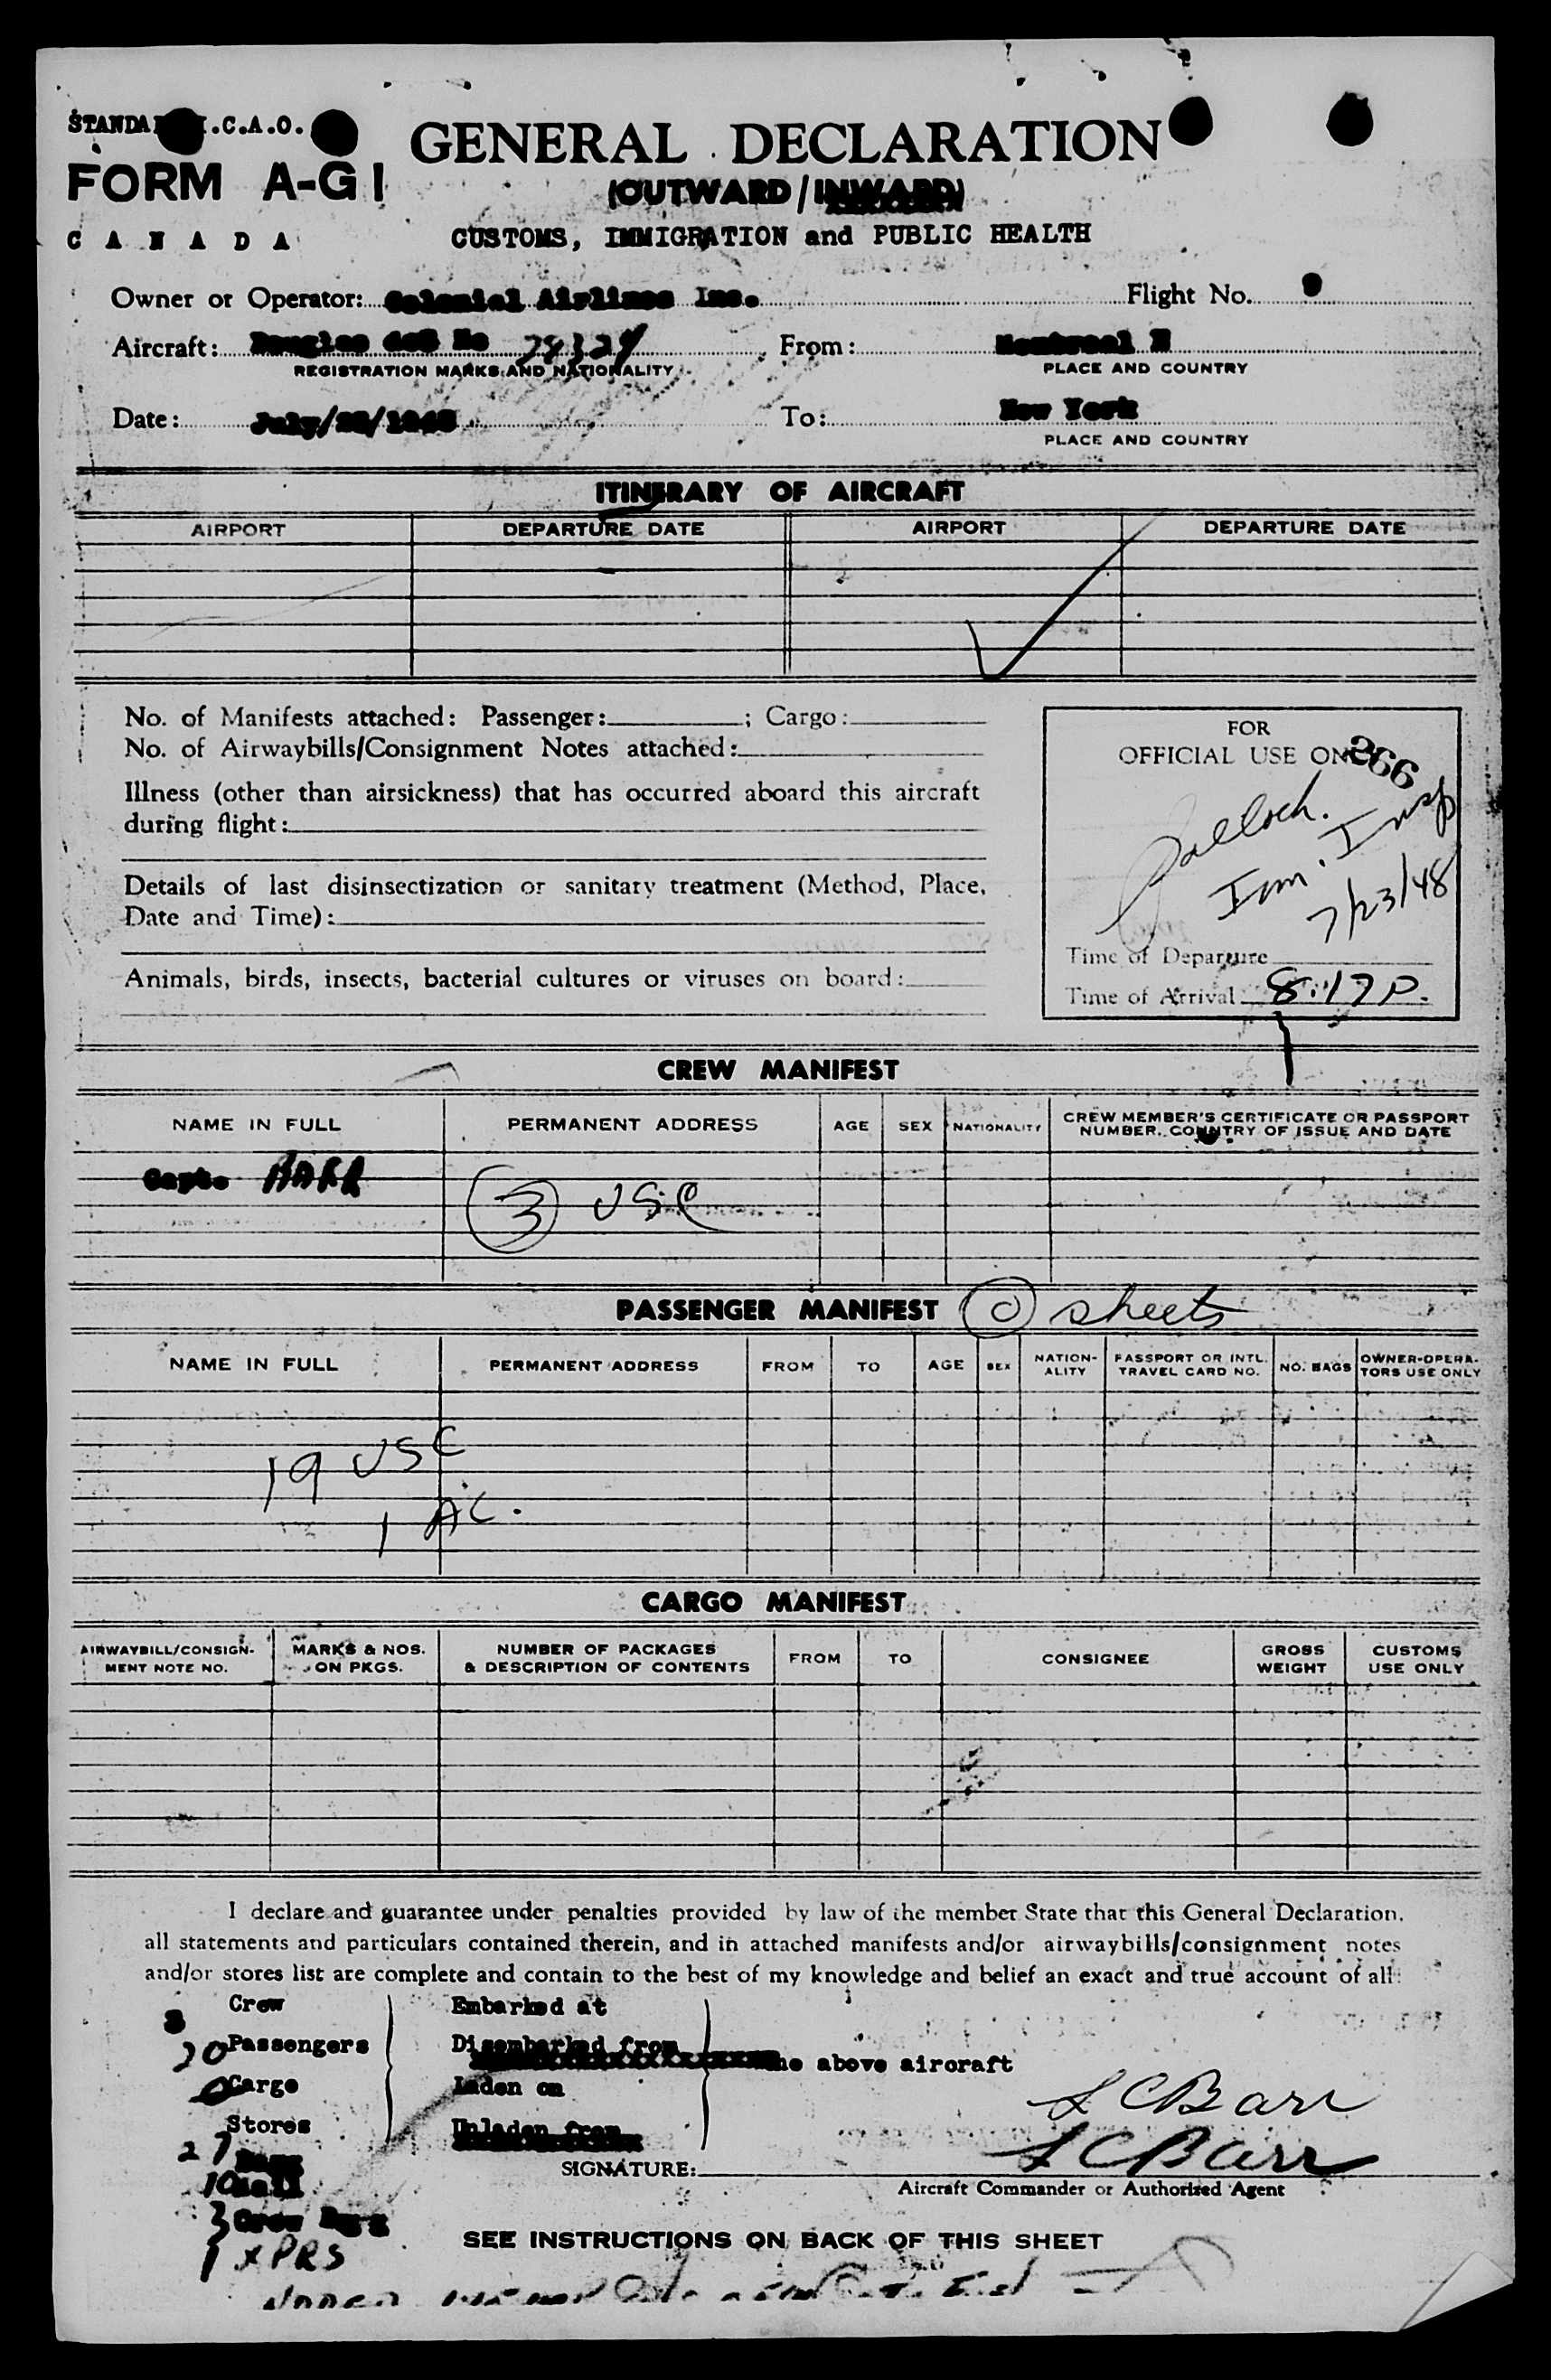 I.C.A.O.
GENERAL DECLARATION
FORM A-G1
(OUTWARD/INWARD)
CANADA
CUSTOMS, IMMIGRATION and PUBLIC HEALTH
Owner or Operator: Colonial Airlines Inc. Flight No. 9
Aircraft: Douglas No From: Montreal
REGISTRATION MARKS AND NATIONALITY PLACE AND COUNTRY
Date: To: New York
PLACE AND COUNTRY
ITINERARY OF AIRCRAFT
AIRPORT DEPARTURE DATE AIRPORT DEPARTURE DATE
No. of Manifests attached: Passenger: ; Cargo:
No. of Airwaybills/Consignment Notes attached:
Illness (other than airsickness) that has occurred aboard this aircraft
during flight:
Details of last disinsectization or sanitary treatment (Method, Place,
Date and Time):
Animals, birds, insects, bacterial cultures or viruses on board:
FOR
OFFICIAL USE
266
Imm. Insp
7/23/48
Time of Departure
Time of Arrival 8:17 P.
CREW MANIFEST
NAME IN FULL PERMANENT ADDRESS AGE SEX NATIONALITY CREW MEMBER'S CERTIFICATE OR PASSPORT
NUMBER, COUNTRY OF ISSUE AND DATE
Capt. BARR
3 USC
PASSENGER MANIFEST 0 sheets
NAME IN FULL PERMANENT ADDRESS FROM TO AGE SEX NATION-
ALITY PASSPORT OR INTL.
TRAVEL CARD NO. NO. BAGS OWNER-OPERA-
TORS USE ONLY
19 USC
1 AC.
CARGO MANIFEST
AIRWAYBILL/CONSIGN-
MENT NOTE NO. MARKS & NOS.
ON PKGS. NUMBER OF PACKAGES
& DESCRIPTION OF CONTENTS FROM TO CONSIGNEE GROSS
WEIGHT CUSTOMS
USE ONLY
I declare and guarantee under penalties provided by law of the member State that this General Declaration,
all statements and particulars contained therein, and in attached manifests and/or airwaybills/consignment notes
and/or stores list are complete and contain to the best of my knowledge and belief an exact and true account of all:
3 Crew Embarked at
20 Passengers Disembarked from
the above aircraft
0 Cargo Laden on
L C Barr
Stores Unladen from
27
L C Barr
SIGNATURE:
10 Mail
Aircraft Commander or Authorized Agent
3 Crew Bags
SEE INSTRUCTIONS ON BACK OF THIS SHEET
1 XPRS